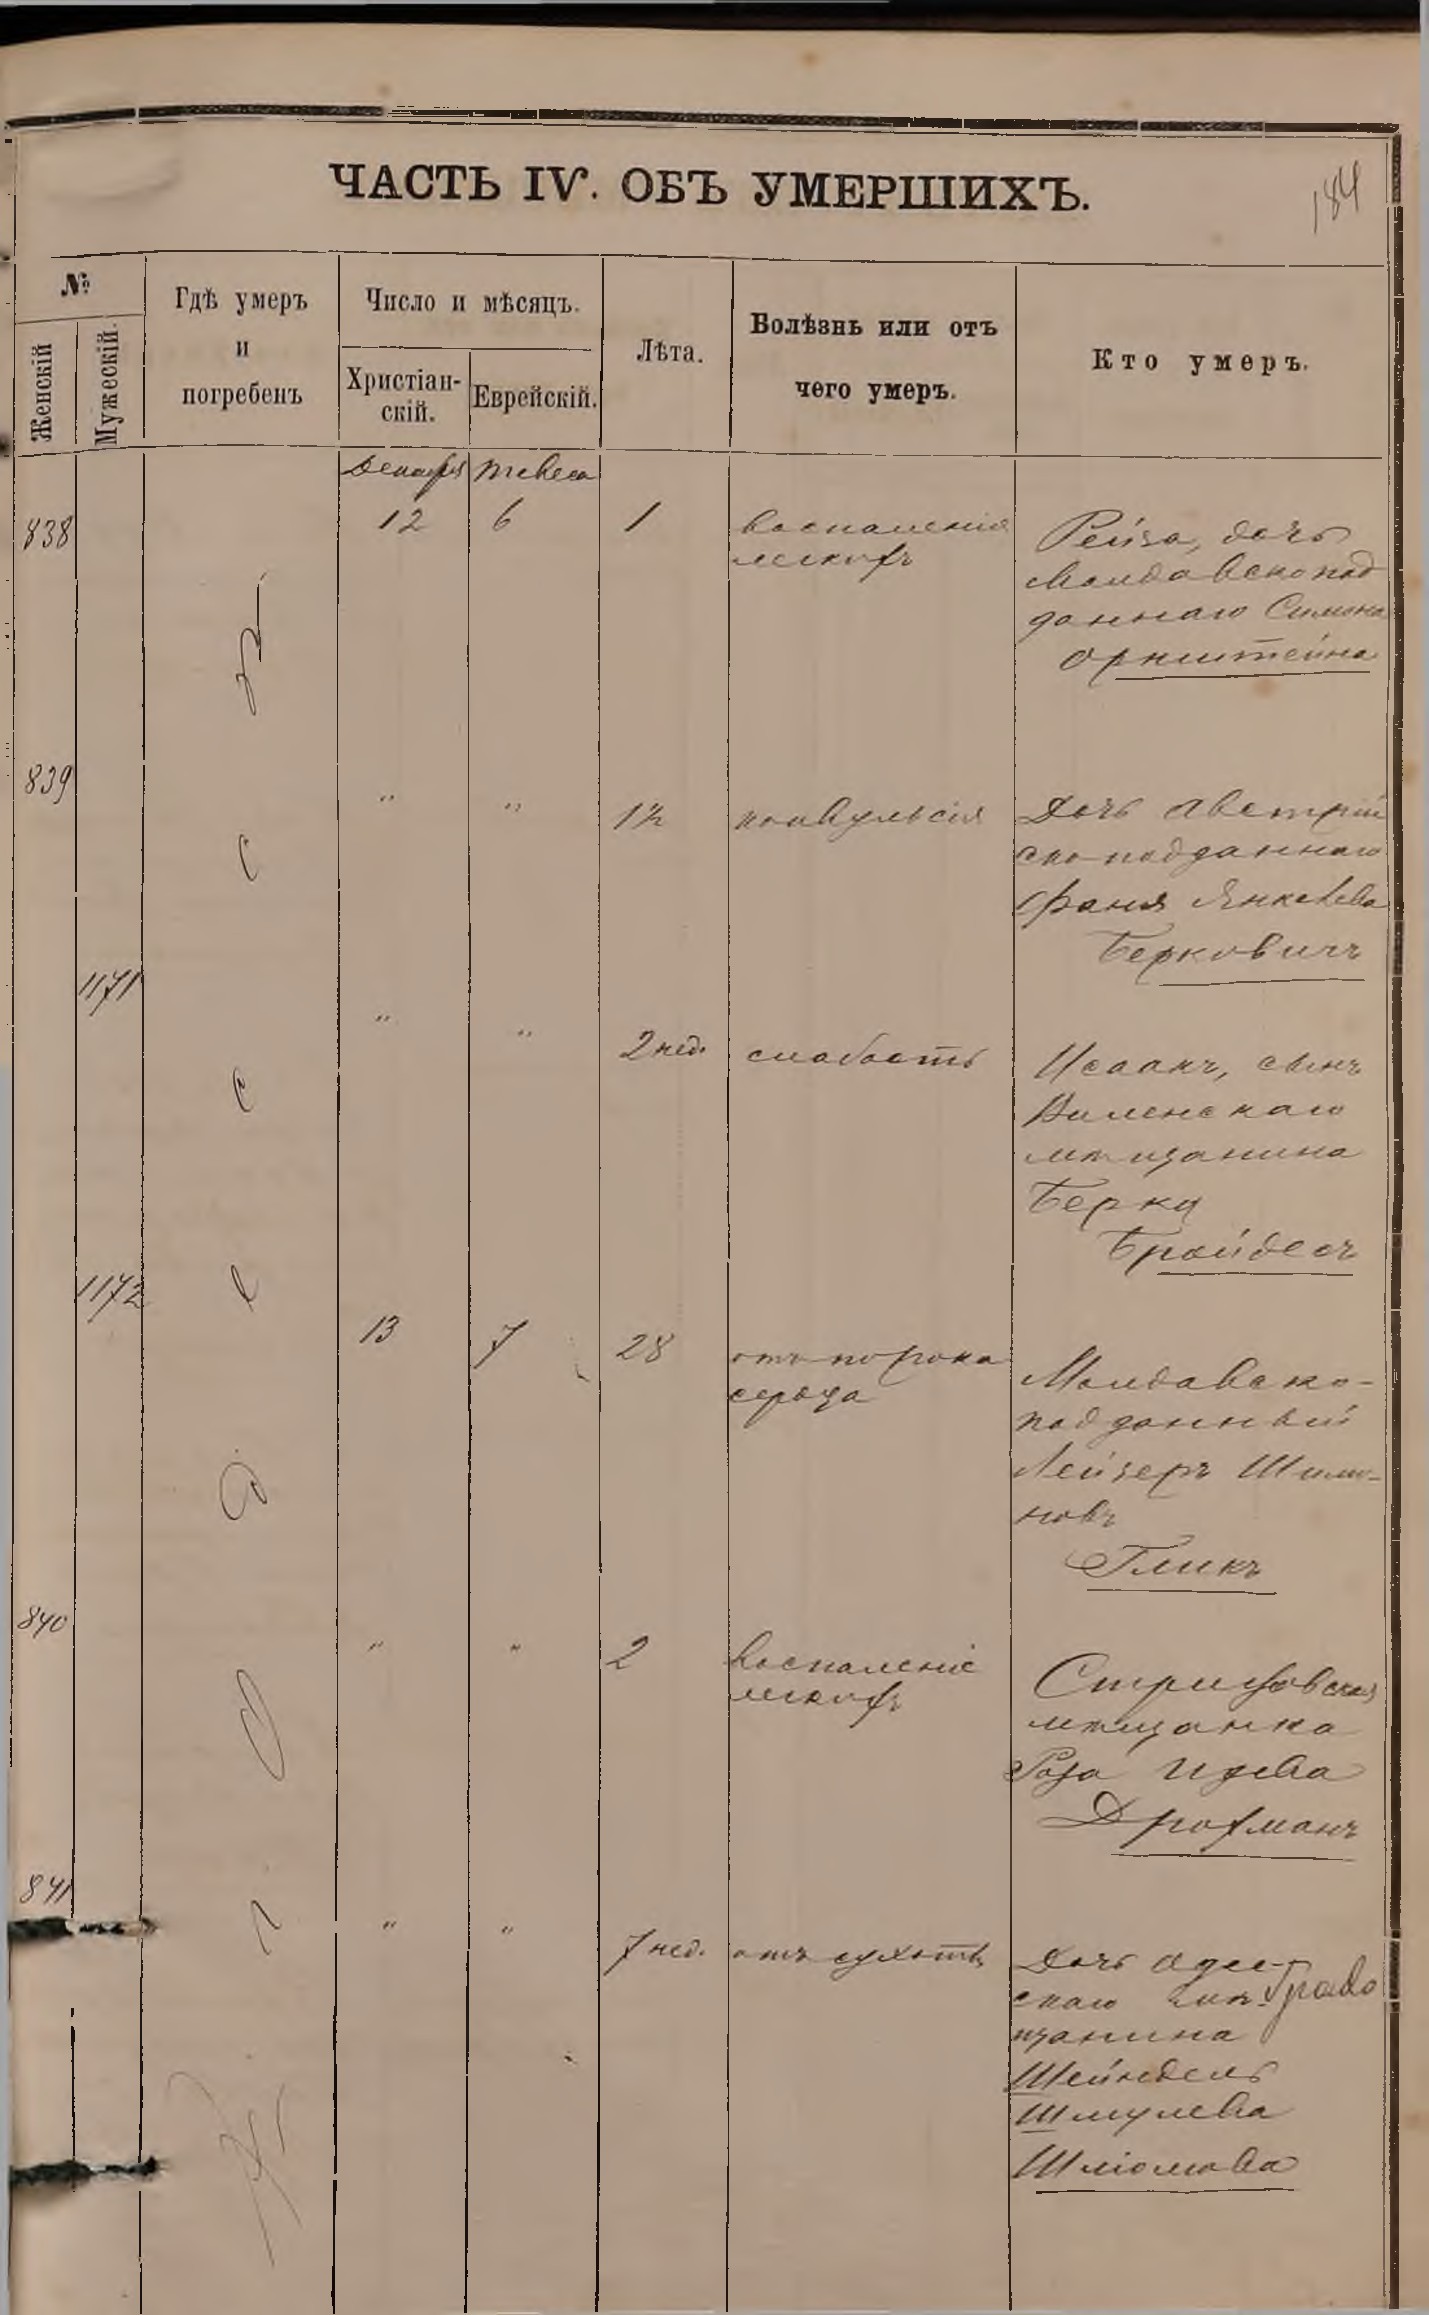 ЧАСТЬ IV. ОБЪ УМЕРШИХЪ.
184
№
Женскій
Мужескій.
Гдѣ умеръ
и
погребенъ
Число и мѣсяцъ.
Христіан-
скій.
Еврейскій.
Лѣта.
Болѣзнь или отъ
чего умеръ.
Кто умеръ.
Декабря Тевеса
838 12 6 1 воспаленія
легкихъ
Рейза, дочь
Молдавскопод
даннаго Симона
Орнштейна
839 " " 1½ конвульсія
Дочь Австрій
ско-подданнаго
Фаня Янкелева
Берковичъ
1171 " " 2 нед. слабость
Исаакъ, сынъ
Виленскаго
мѣщанина
Берки
Бройдесъ
1172 13 7 28 отъ порока
сердца
Молдавско-
подданный
Лейзеръ Шимо-
новъ
Гликъ
840 " " 2 воспаленіе
легкихъ
мѣщанка
Роза
841 " " 7 нед. отъ сухотъ
Дочь Одес-
скаго мѣ-
щанина
Шейндель
Шмулева
Шліомова
Одесса